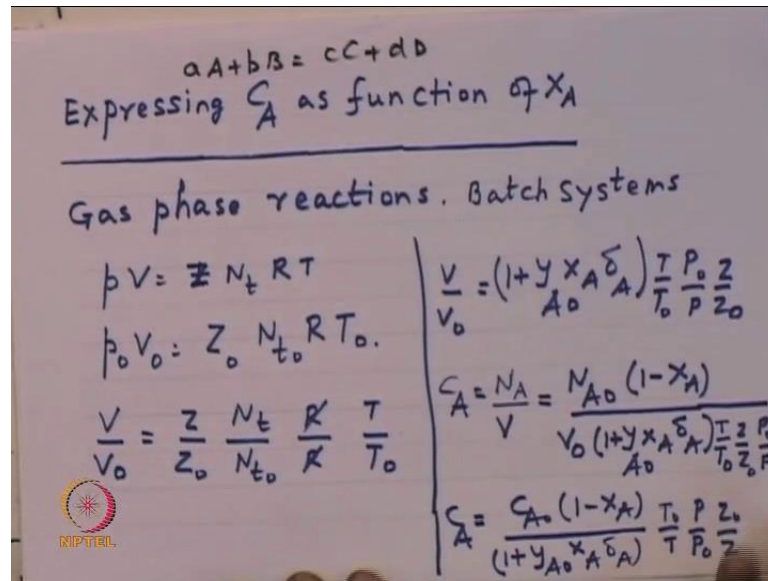 aA+bB= cC+dD
Expressing C_A as function of X_A
Gas phase reactions. Batch systems
pV= Z N_t R T
p_0 V_0 = Z_0 N_t0 R T_0.
V/V_0 = Z/Z_0 N_t/N_t0 R/R T/T_0
V/V_0 = (1+y_A0 X_A δ_A) T/T_0 P_0/P Z/Z_0
C_A = N_A/V = N_A0 (1-X_A) / V_0 (1+y_A0 X_A δ_A) T/T_0 Z/Z_0 P_0/P
C_A = C_A0 (1-X_A) / (1+y_A0 X_A δ_A) T_0/T P/P_0 Z_0/Z
NPTEL